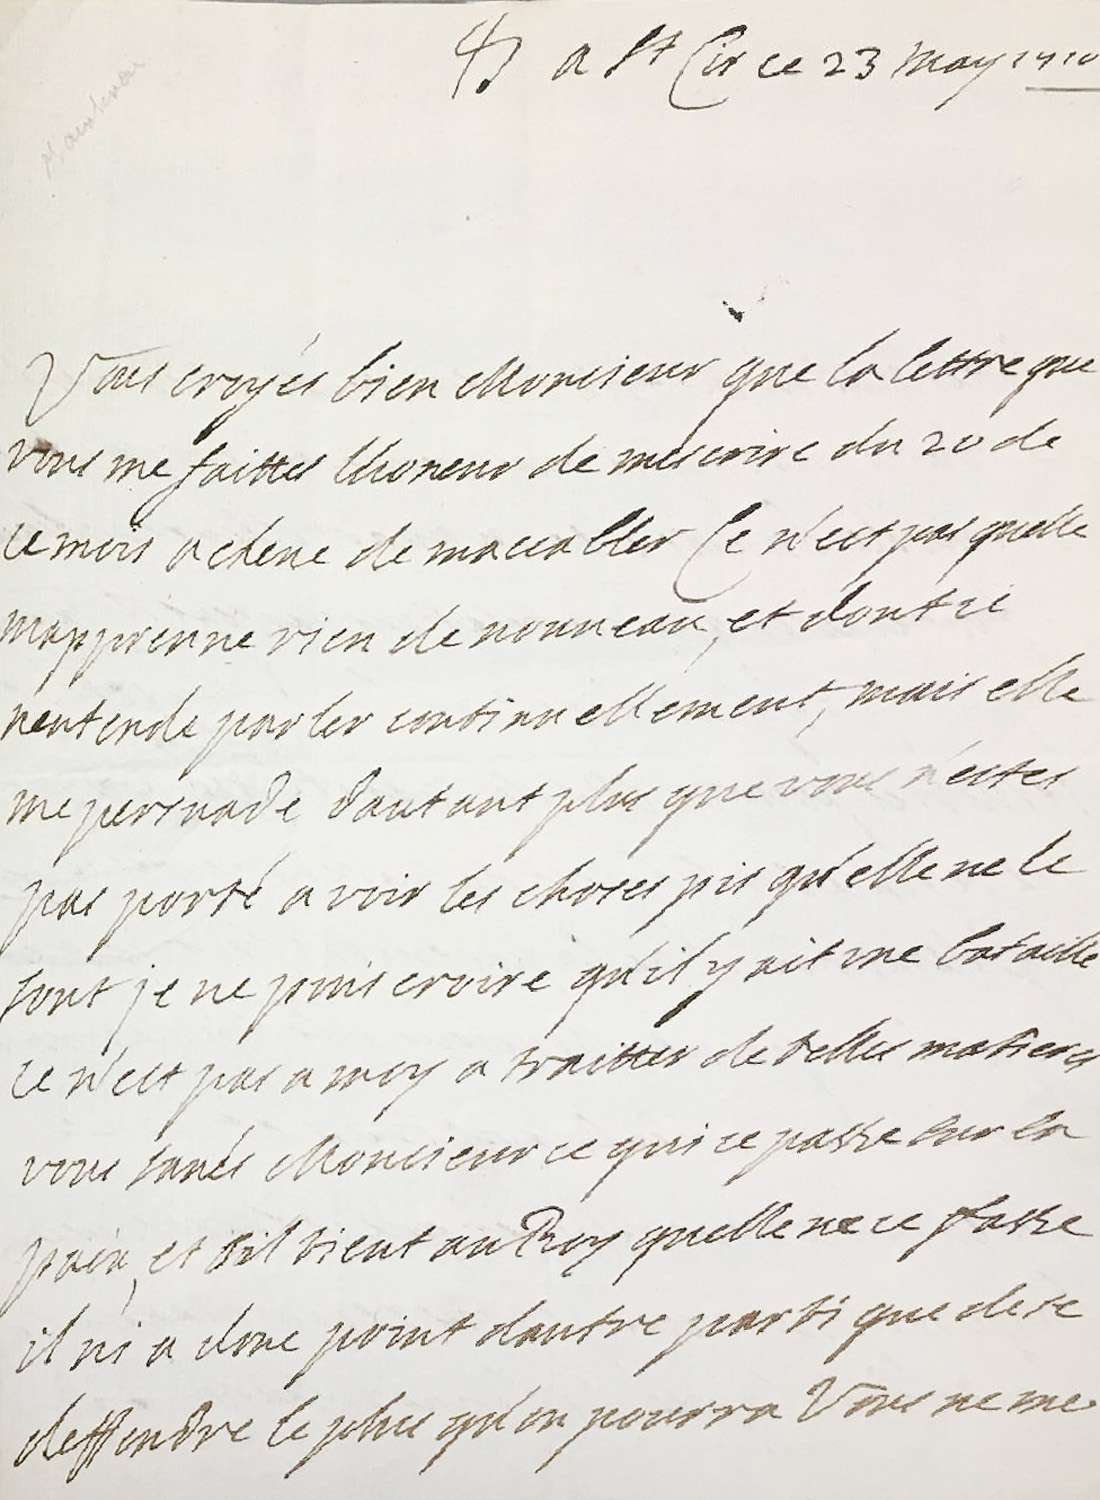 a St Cir ce 23 may 1710
Maintenon
Vous croyés bien Monsieur que la lettre que
vous me faittes lhoneur de mescrire du 20 de
ce mois acheve de maccabler Ce n'est pas quelle
mapprenne rien de nouveau, et dont ie
n'entende parler continuellement, mais elle
me persuade dautant plus que vous n'estes
pas porté a voir les choses pis qu'elle ne le
sont je ne puis croire qu'il y ait une bataille
ce n'est pas a moy a traitter de telles matieres
vous savés Monsieur ce qui ce passe sur la
paix, et sil tient au Roy quelle ne ce fasse
il ni a donc point dautre parti que de se
deffendre le plus qu'on pourra Vous ne me